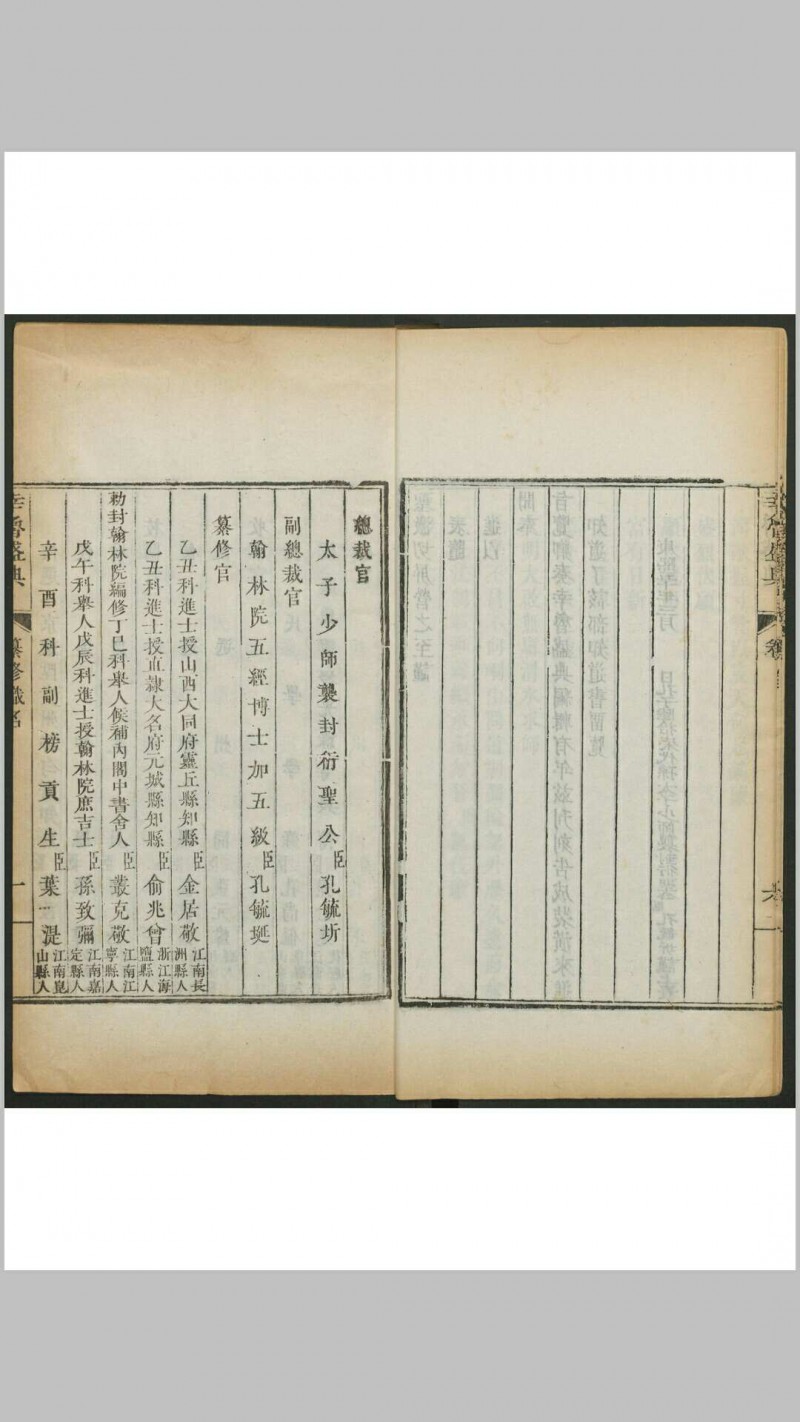 幸魯盛典
總裁官
太子少師襲封衍聖公臣孔毓圻
副總裁官
翰林院五經博士加五級臣孔毓埏
纂修官
乙丑科進士授山西大同府靈丘縣知縣臣金居敬江南長洲縣人
乙丑科進士授直隸大名府元城縣知縣臣俞兆曾浙江海鹽縣人
勑封翰林院編修丁巳科舉人候補內閣中書舍人臣叢克敬江南江寧縣人
戊午科舉人戊辰科進士授翰林院庶吉士臣孫致彌江南嘉定縣人
辛酉科副榜貢生臣葉湜江南崑山縣人
幸魯盛典
纂修職名
一